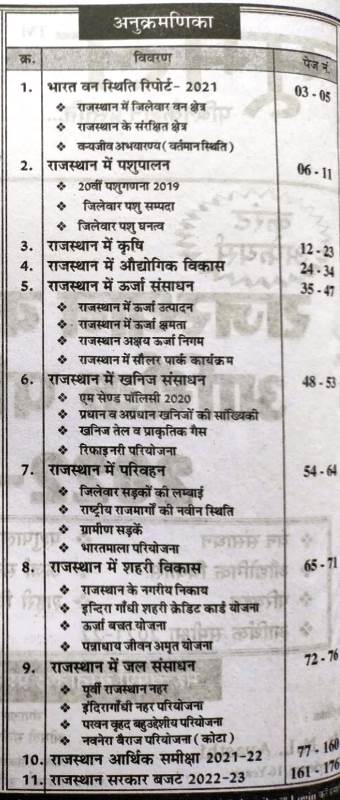 अनुक्रमणिका
क्र. विवरण पेज नं.
1. भारत वन स्थिति रिपोर्ट- 2021 03 - 05
❖ राजस्थान में जिलेवार वन क्षेत्र
❖ राजस्थान के संरक्षित क्षेत्र
❖ वन्यजीव अभयारण्य (वर्तमान स्थिति)
2. राजस्थान में पशुपालन 06 - 11
❖ 20वीं पशुगणना 2019
❖ जिलेवार पशु सम्पदा
❖ जिलेवार पशु घनत्व
3. राजस्थान में कृषि 12 - 23
4. राजस्थान में औद्योगिक विकास 24 - 34
5. राजस्थान में ऊर्जा संसाधन 35 - 47
❖ राजस्थान में ऊर्जा उत्पादन
❖ राजस्थान में ऊर्जा क्षमता
❖ राजस्थान अक्षय ऊर्जा निगम
❖ राजस्थान में सौलर पार्क कार्यक्रम
6. राजस्थान में खनिज संसाधन 48 - 53
❖ एम सेण्ड पॉलिसी 2020
❖ प्रधान व अप्रधान खनिजों की सांख्यिकी
❖ खनिज तेल व प्राकृतिक गैस
❖ रिफाइनरी परियोजना
7. राजस्थान में परिवहन 54 - 64
❖ जिलेवार सड़कों की लम्बाई
❖ राष्ट्रीय राजमार्गों की नवीन स्थिति
❖ ग्रामीण सड़कें
❖ भारतमाला परियोजना
8. राजस्थान में शहरी विकास 65 - 71
❖ राजस्थान के नगरीय निकाय
❖ इन्दिरा गाँधी शहरी क्रेडिट कार्ड योजना
❖ ऊर्जा बचत योजना
❖ पन्नाधाय जीवन अमृत योजना
9. राजस्थान में जल संसाधन 72 - 76
❖ पूर्वी राजस्थान नहर
❖ इंदिरागाँधी नहर परियोजना
❖ परवन वृहद बहुउद्देशीय परियोजना
❖ नवनेरा बैराज परियोजना (कोटा)
10. राजस्थान आर्थिक समीक्षा 2021-22 77 - 160
11. राजस्थान सरकार बजट 2022-23 161 - 176